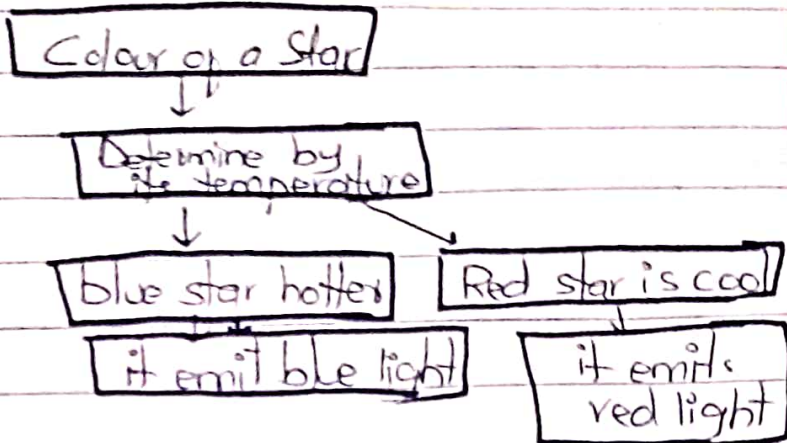 Colour of a Star
Determine by
its temperature
blue star hotter
Red star is cool
it emit ble light
it emits
red light